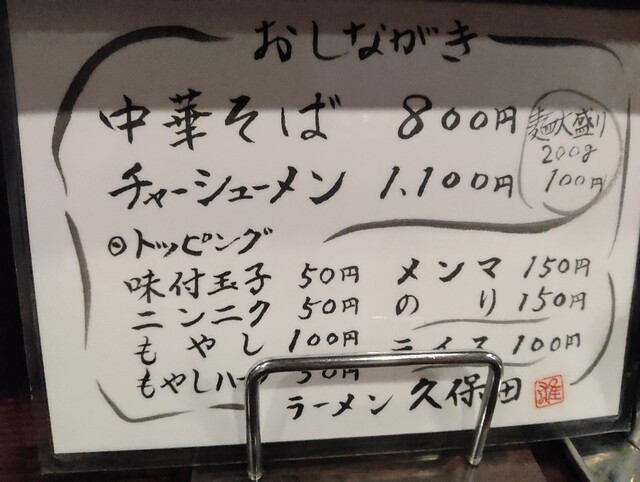 おしながき
中華そば 800円
チャーシューメン 1,100円
麺大盛り
200g
100円
◎トッピング
味付玉子 50円
ニンニク 50円
もやし 100円
もやしハーフ 50円
メンマ 150円
のり 150円
100円
ラーメン 久保田